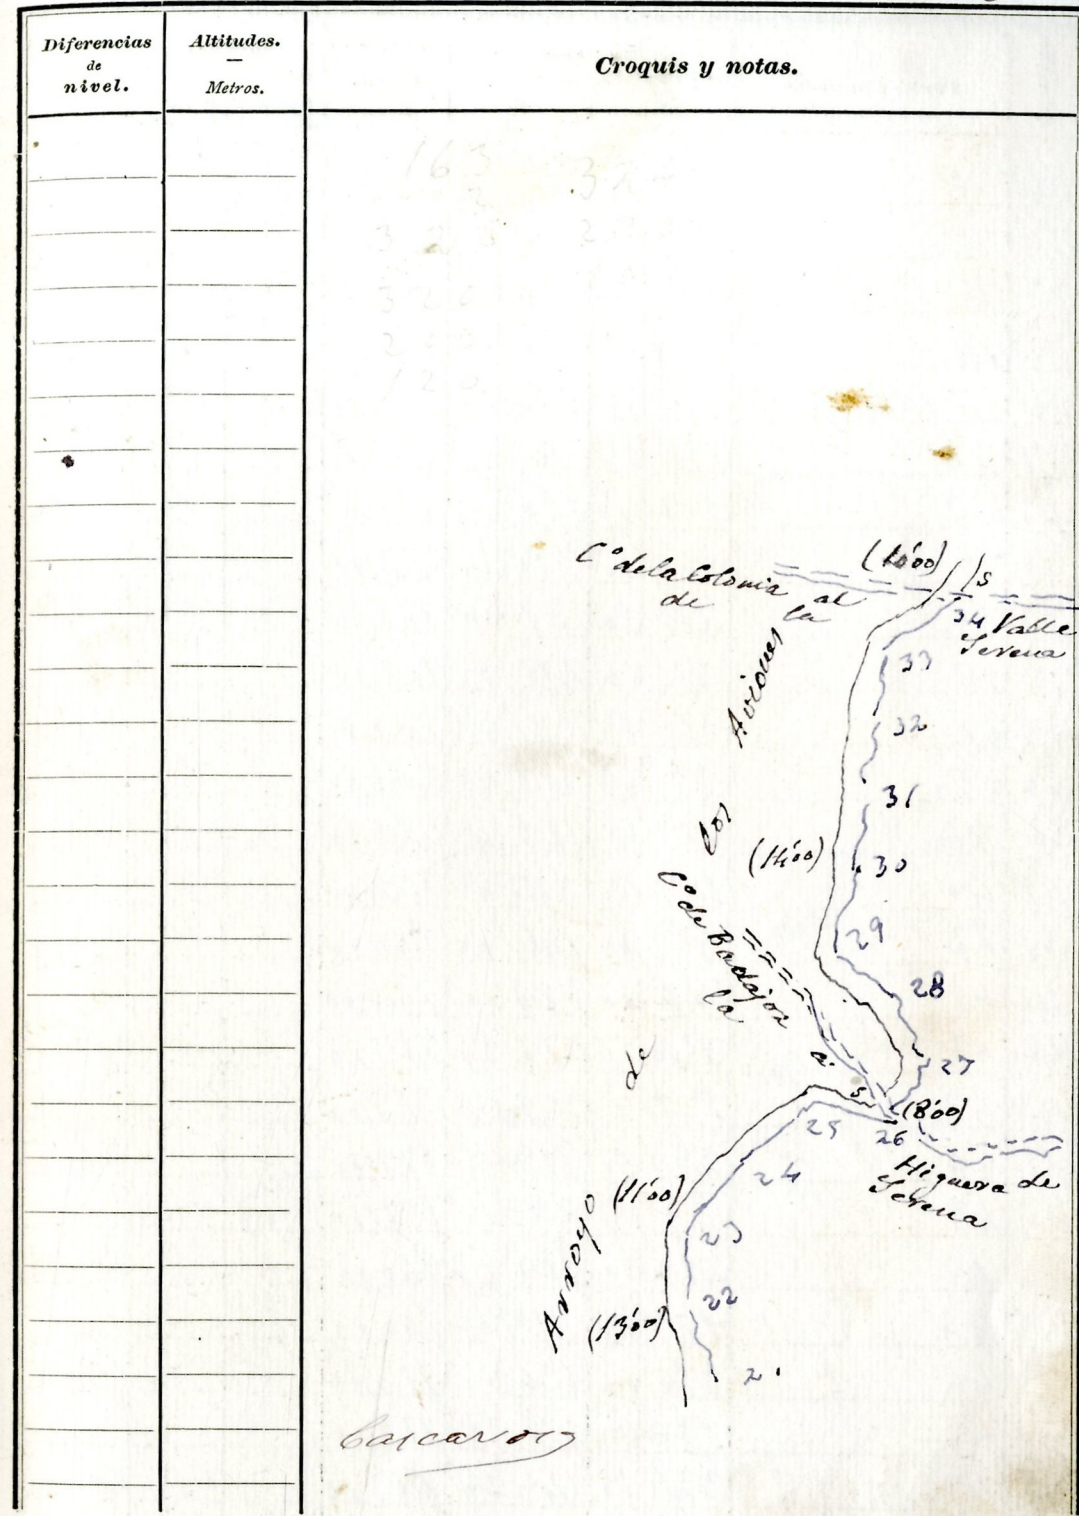 Diferencias
de
nivel.
Altitudes.
—
Metros.
Croquis y notas.
163
2
326
320
200
120
Cº de la Colonia al Valle
de la Serena
(10'00)
S
34
33
32
31
(14'00)
30
29
28
27
Cº de Badajoz a Higuera de
la Serena
S
(8'00)
26
25
24
(11'00)
23
22
(13'00)
21
Arroyo de los Aviones